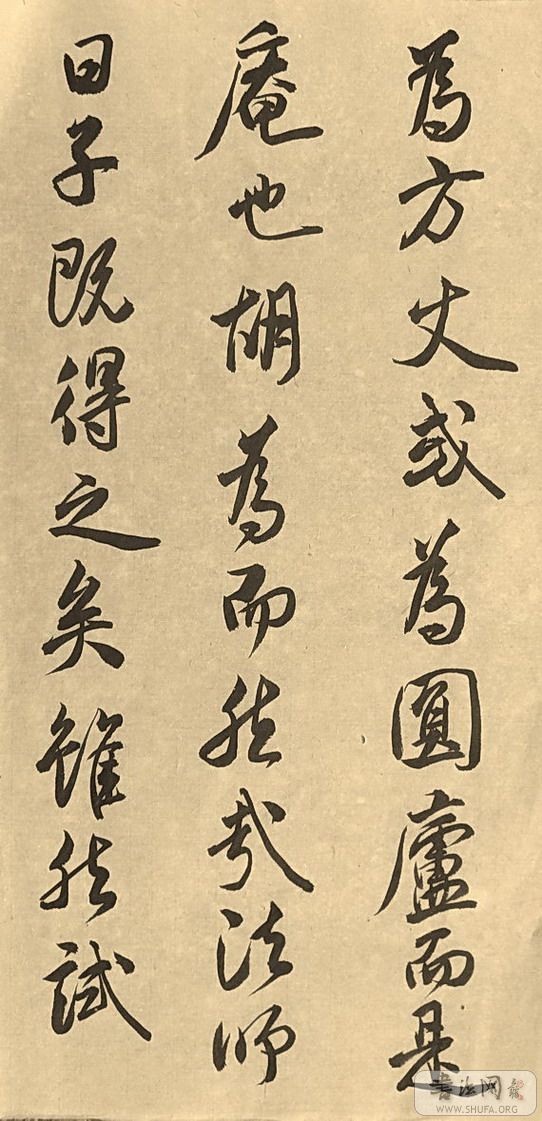 為方丈或為圓廬而是
庵也胡為而然哉法師
曰子既得之矣雖然試
書法网
WWW.SHUFA.ORG